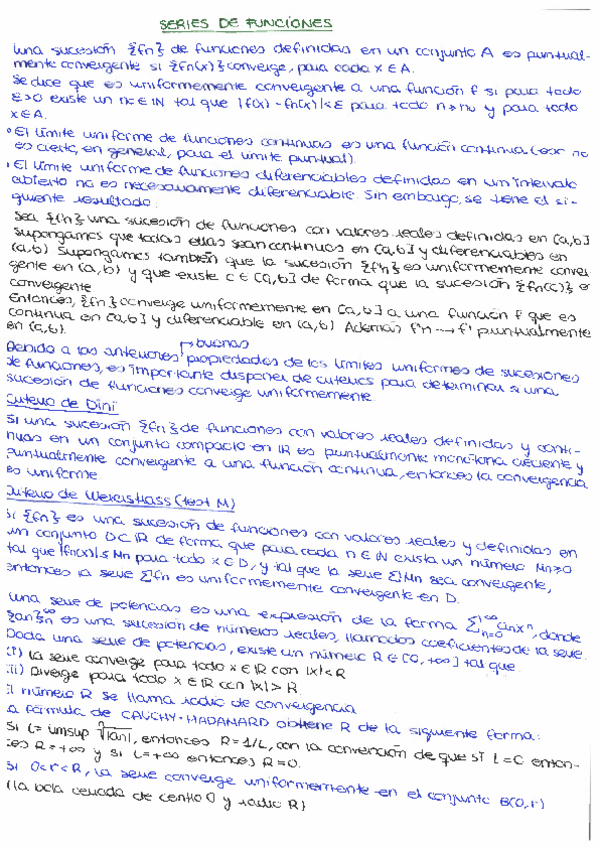 SERIES DE FUNCIONES
Una sucesión {fn} de funciones definidas en un conjunto A es puntual-
mente convergente si {fn(x)} converge, para cada x ∈ A.
Se dice que es uniformemente convergente a una función f si para todo
ε>0 existe un n₀ ∈ ℕ tal que |f(x) - fn(x)| < ε para todo n ≥ n₀ y para todo
x ∈ A.
• El límite uniforme de funciones continuas es una función continua (eso no
es cierto, en general, para el límite puntual).
• El límite uniforme de funciones diferenciables definidas en un intervalo
abierto no es necesariamente diferenciable. Sin embargo, se tiene el si-
guiente resultado:
Sea {fn} una sucesión de funciones con valores reales definidas en [a,b]
Supongamos que todas ellas sean continuas en [a,b] y diferenciables en
(a,b) Supongamos también que la sucesión {f'n} es uniformemente conver-
gente en (a,b) y que existe c ∈ [a,b] de forma que la sucesión {fn(c)} es
convergente
Entonces, {fn} converge uniformemente en [a,b] a una función f que es
continua en [a,b] y diferenciable en (a,b) Además f'n → f' puntualmente
en (a,b).
buenas
Debido a las anteriores propiedades de los límites uniformes de sucesiones
de funciones, es importante disponer de criterios para determinar si una
sucesión de funciones converge uniformemente.
Criterio de Dini
Si una sucesión {fn} de funciones con valores reales definidas y conti-
nuas en un conjunto compacto en ℝ es puntualmente monótona creciente y
puntualmente convergente a una función continua, entonces la convergencia
es uniforme
Criterio de Weierstrass (test M)
Si {fn} es una sucesión de funciones con valores reales y definidas en
un conjunto D⊂ℝ de forma que para cada n ∈ ℕ exista un número Mn≥0
tal que |fn(x)| ≤ Mn para todo x ∈ D, y tal que la serie ∑Mn sea convergente,
entonces la serie ∑fn es uniformemente convergente en D.
Una serie de potencias es una expresión de la forma ∑_{n=0}^{+∞} an xⁿ, donde
{an}_{0}^{∞} es una sucesión de números reales, llamados coeficientes de la serie.
Dada una serie de potencias, existe un número R ∈ [0, +∞] tal que
(i) La serie converge para todo x ∈ ℝ con |x| < R
(ii) Diverge para todo x ∈ ℝ con |x| > R
El número R se llama radio de convergencia
La fórmula de CAUCHY-HADAMARD obtiene R de la siguiente forma:
Si L = limsup ⁿ√|an|, entonces R = 1/L, con la convención de que si L=0 enton-
ces R=+∞ y si L=+∞ entonces R=0.
Si 0<r<R, la serie converge uniformemente en el conjunto B(0,r)
(la bola cerrada de centro 0 y radio R)